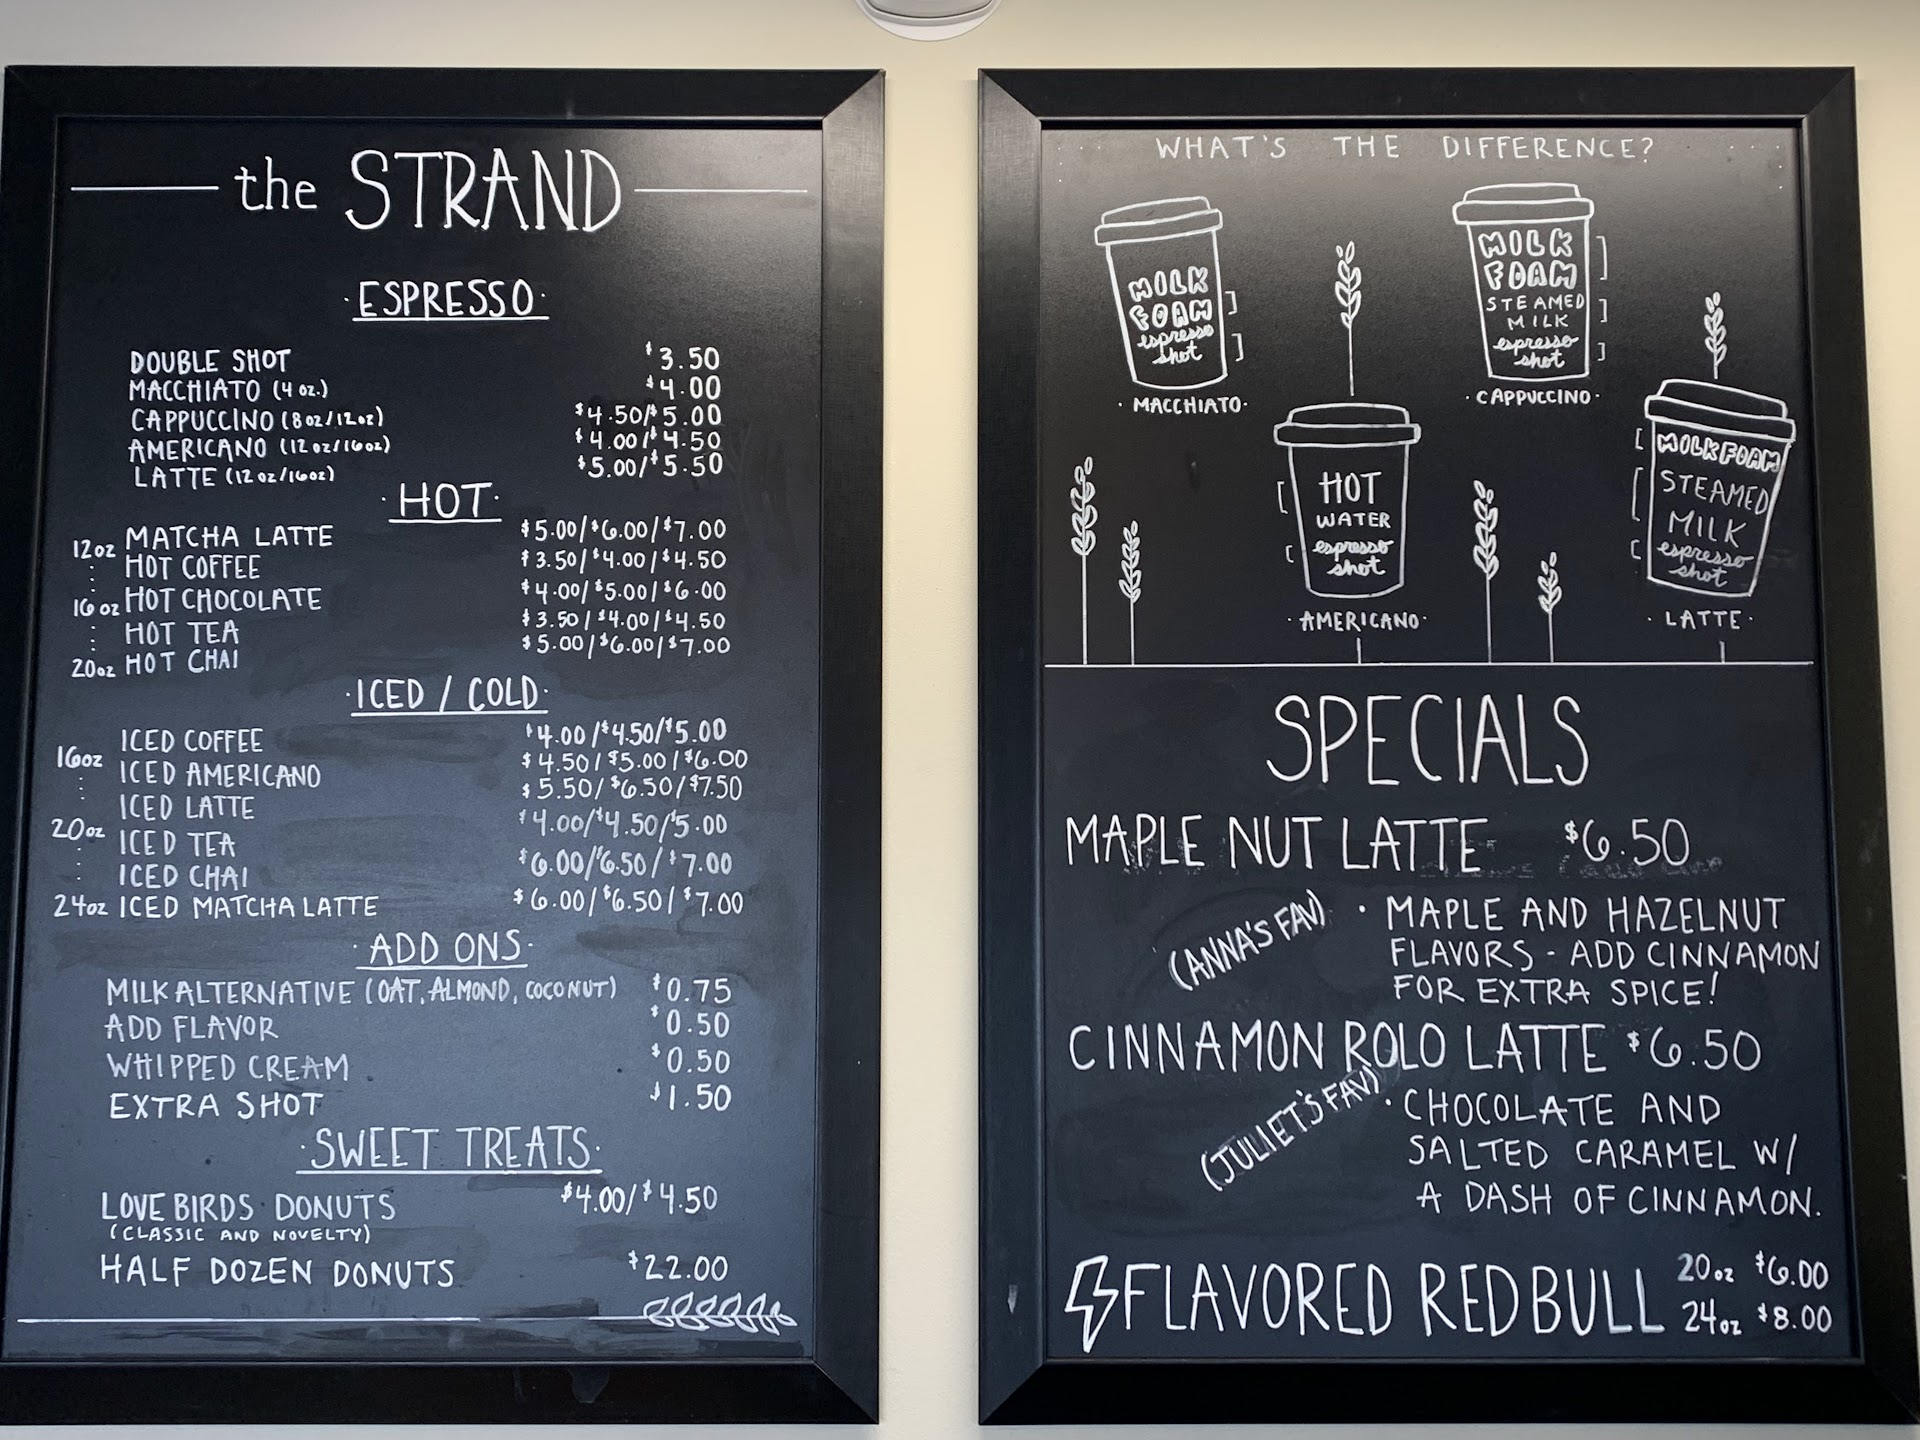 the STRAND
·ESPRESSO·
DOUBLE SHOT $3.50
MACCHIATO (4 oz.) $4.00
CAPPUCCINO (8oz/12oz) $4.50/$5.00
AMERICANO (12oz/16oz) $4.00/$4.50
LATTE (12oz/16oz) $5.00/$5.50
·HOT·
12oz MATCHA LATTE $5.00/$6.00/$7.00
HOT COFFEE $3.50/$4.00/$4.50
16oz HOT CHOCOLATE $4.00/$5.00/$6.00
HOT TEA $3.50/$4.00/$4.50
20oz HOT CHAI $5.00/$6.00/$7.00
·ICED / COLD·
ICED COFFEE $4.00/$4.50/$5.00
16oz ICED AMERICANO $4.50/$5.00/$6.00
ICED LATTE $5.50/$6.50/$7.50
20oz ICED TEA $4.00/$4.50/$5.00
ICED CHAI $6.00/$6.50/$7.00
24oz ICED MATCHA LATTE $6.00/$6.50/$7.00
·ADD ONS·
MILK ALTERNATIVE (OAT, ALMOND, COCONUT) $0.75
ADD FLAVOR $0.50
WHIPPED CREAM $0.50
EXTRA SHOT $1.50
·SWEET TREATS·
LOVE BIRDS DONUTS $4.00/$4.50
(CLASSIC AND NOVELTY)
HALF DOZEN DONUTS $22.00
WHAT'S THE DIFFERENCE?
MILK
FOAM
espresso
shot
·MACCHIATO·
MILK
FOAM
STEAMED
MILK
espresso
shot
·CAPPUCCINO·
HOT
WATER
espresso
shot
·AMERICANO·
MILK FOAM
STEAMED
MILK
espresso
shot
·LATTE·
SPECIALS
MAPLE NUT LATTE $6.50
(ANNA'S FAV)
· MAPLE AND HAZELNUT
FLAVORS - ADD CINNAMON
FOR EXTRA SPICE!
CINNAMON ROLO LATTE $6.50
(JULIET'S FAV)
· CHOCOLATE AND
SALTED CARAMEL W/
A DASH OF CINNAMON.
FLAVORED REDBULL
20oz $6.00
24oz $8.00